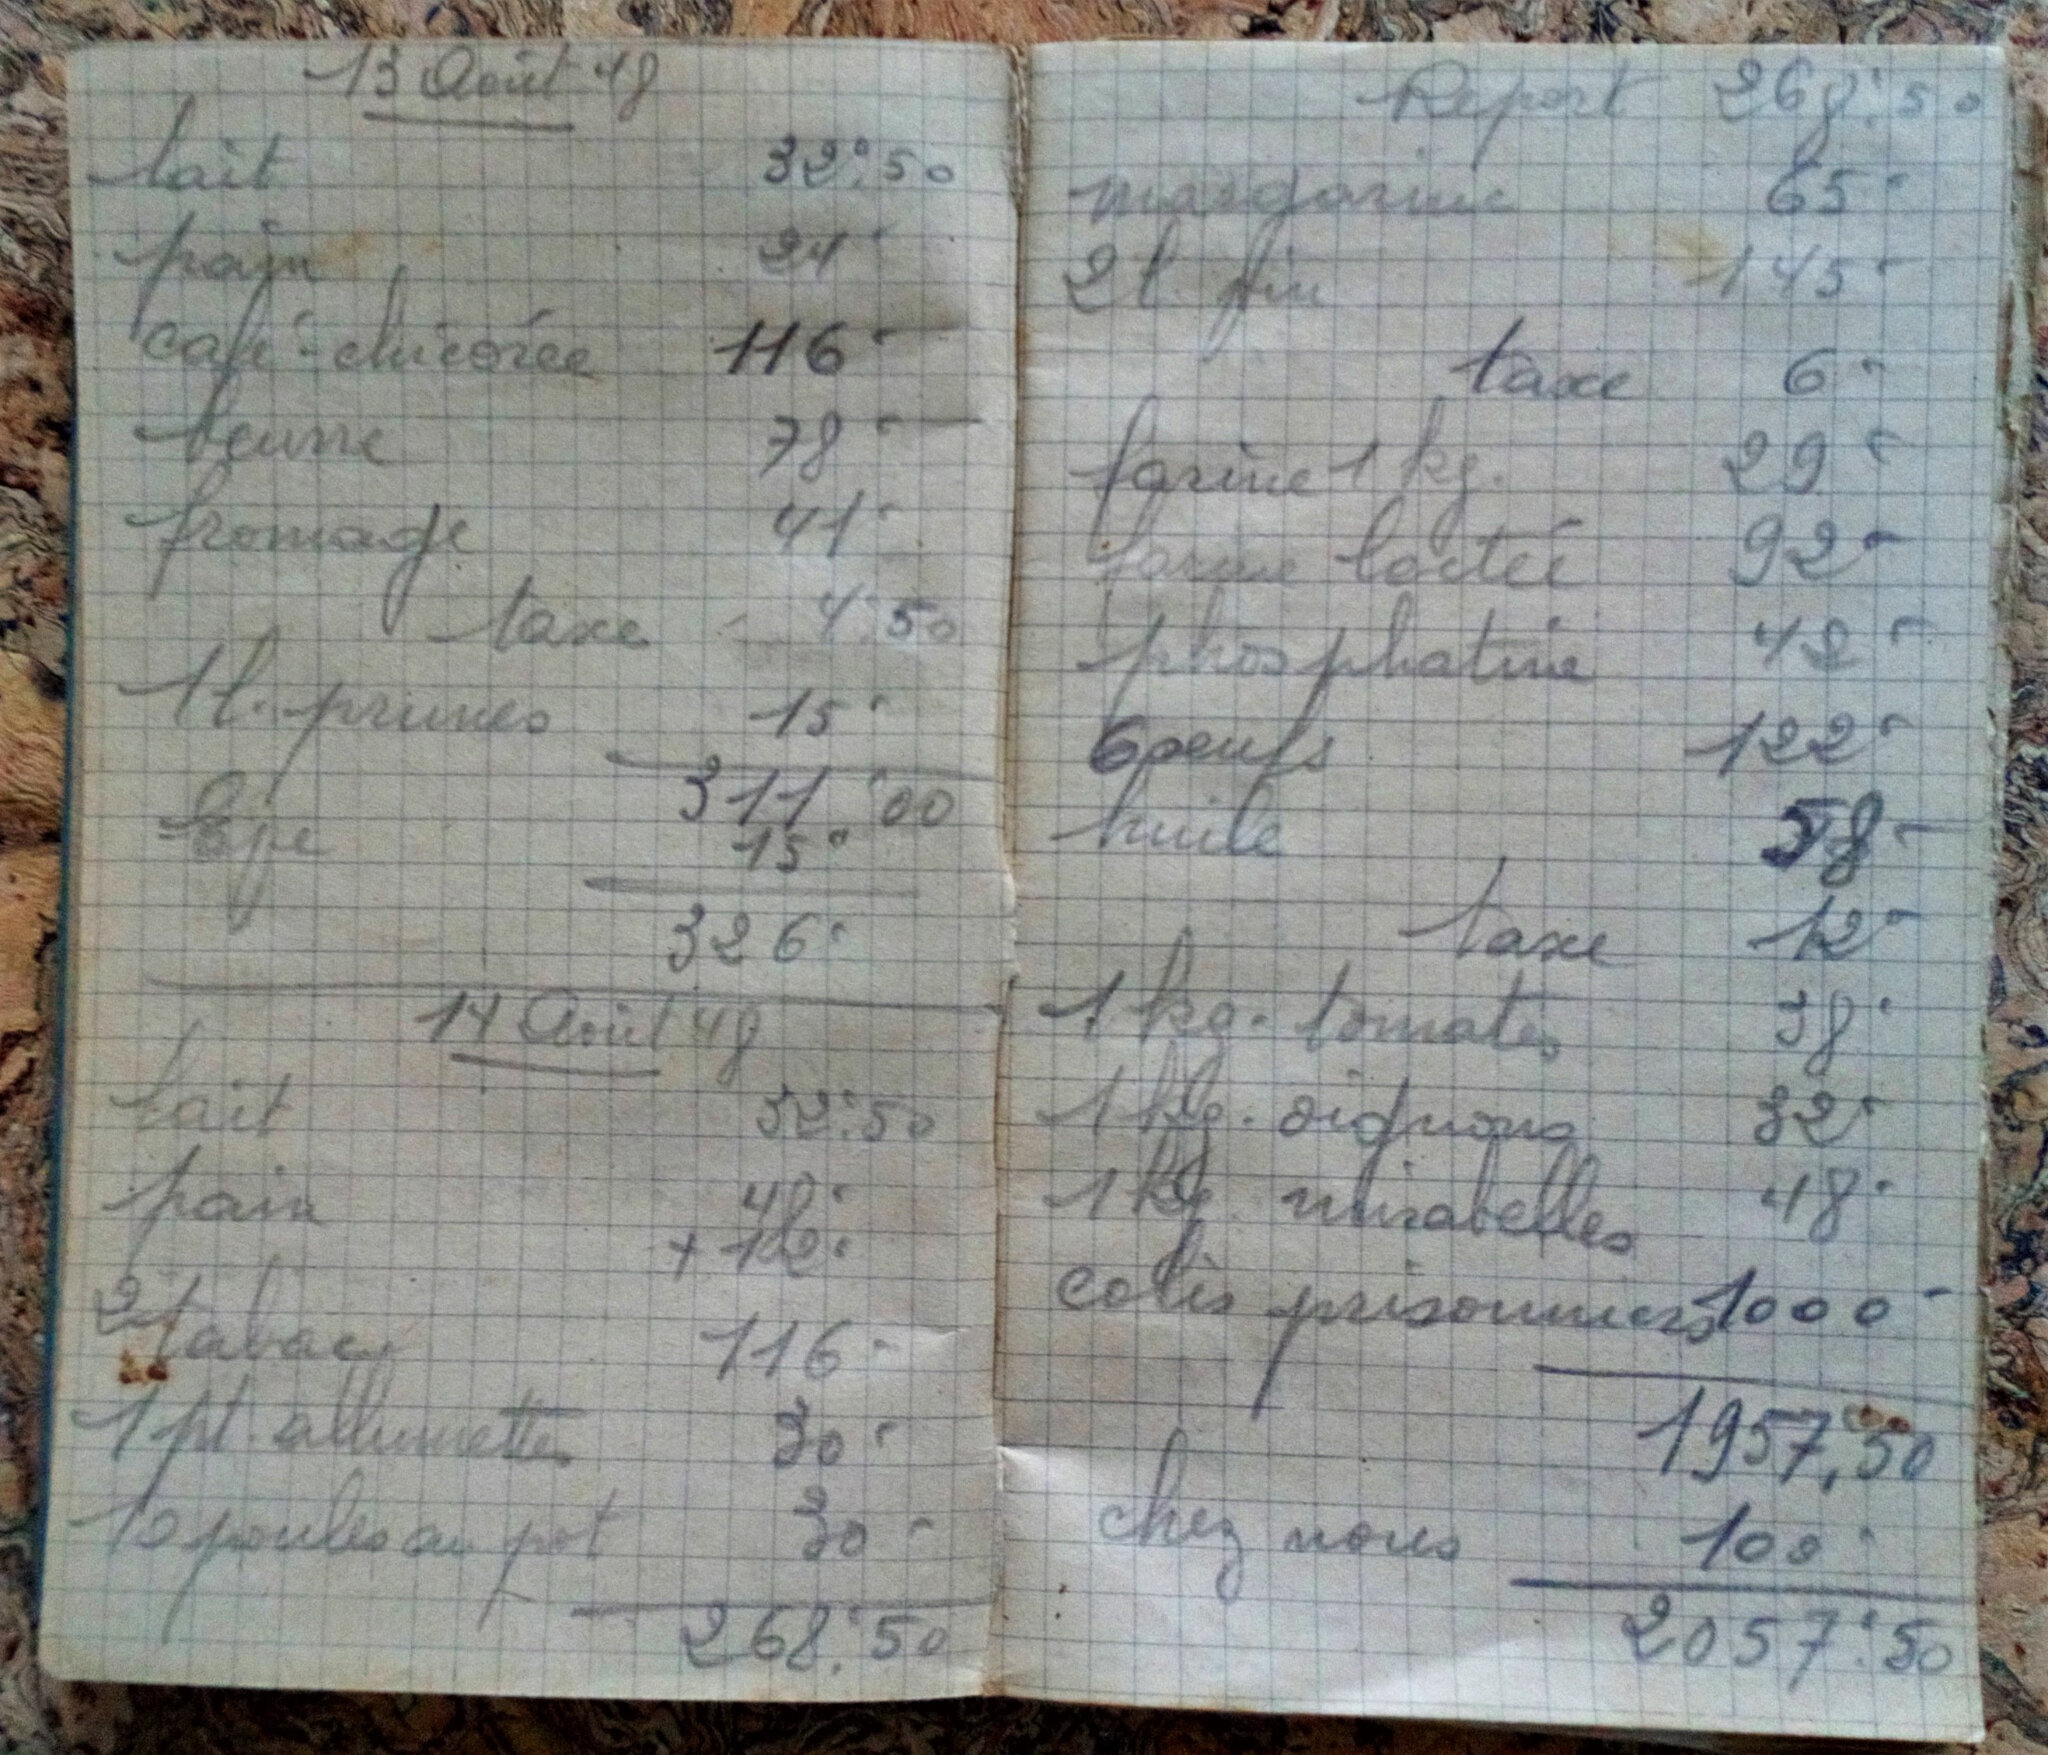 13 Août 48
lait 32:50
pain 24
café-chicorée 116
beurre 78
fromage 41
taxe 4:50
1l. prunes 15
311:00
15
326
14 Août 48
lait 32:50
pain 48
+ 12
2 tabacs 116
1 pt. allumettes 30
10 poules au pot 30
268:50
Report 268:50
margarine 65
2l. 145
taxe 6
farine 1 kg. 29
farine lactée 92
phosphatine 42
6 oeufs 122
huile 58
taxe 12
1 kg. tomates 38
1 kg. oignons 32
1 kg. mirabelles 48
colis prisonniers 1000
1957,50
chez nous 100
2057:50